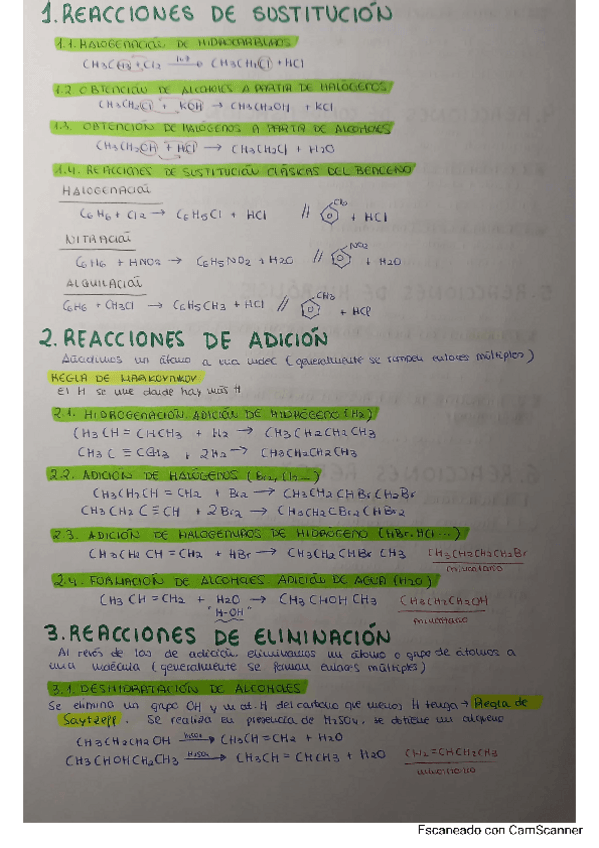 1. REACCIONES DE SUSTITUCIÓN
1.1. HALOGENACIÓN DE HIDROCARBUROS
CH3CH3 + Cl2 → CH3CH2Cl + HCl
1.2. OBTENCIÓN DE ALCOHOLES A PARTIR DE HALÓGENOS
CH3CH2Cl + KOH → CH3CH2OH + KCl
1.3. OBTENCIÓN DE HALÓGENOS A PARTIR DE ALCOHOLES
CH3CH2OH + HCl → CH3CH2Cl + H2O
1.4. REACCIONES DE SUSTITUCIÓN CLÁSICAS DEL BENCENO
HALOGENACIÓN
C6H6 + Cl2 → C6H5Cl + HCl // + HCl
NITRACIÓN
C6H6 + HNO3 → C6H5NO2 + H2O // NO2 + H2O
ALQUILACIÓN
C6H6 + CH3Cl → C6H5CH3 + HCl // CH3 + HCl
2. REACCIONES DE ADICIÓN
Añadimos un átomo a una molec (generalmente se rompen enlaces múltiples)
REGLA DE MARKOVNIKOV
El H se une donde hay más H
2.1. HIDROGENACIÓN. ADICIÓN DE HIDRÓGENO (H2)
CH3CH = CHCH3 + H2 → CH3CH2CH2CH3
CH3C ≡ CCH3 + 2H2 → CH3CH2CH2CH3
2.2. ADICIÓN DE HALÓGENOS (Br2, Cl2...)
CH3CH2CH = CH2 + Br2 → CH3CH2CHBrCH2Br
CH3CH2C ≡ CH + 2Br2 → CH3CH2CBr2CHBr2
2.3. ADICIÓN DE HALOGENUROS DE HIDRÓGENO (HBr, HCl...)
CH3CH2CH = CH2 + HBr → CH3CH2CHBrCH3 CH3CH2CH2CH2Br
minoritario
2.4. FORMACIÓN DE ALCOHOLES. ADICIÓN DE AGUA (H2O)
CH3CH = CH2 + H2O → CH3CHOHCH3 CH3CH2CH2OH
"H-OH" minoritario
3. REACCIONES DE ELIMINACIÓN
Al revés de las de adición eliminamos un átomo o grupo de átomos a
una molécula (generalmente se forman enlaces múltiples)
3.1. DESHIDRATACIÓN DE ALCOHOLES
Se elimina un grupo OH y un at. H del carbono que menos H tenga → Regla de
Saytzeff. Se realiza en presencia de H2SO4, se obtiene un alqueno
CH3CH2CH2OH H2SO4 → CH3CH = CH2 + H2O
CH3CHOHCH2CH3 H2SO4 → CH3CH = CHCH3 + H2O CH2=CHCH2CH3
minoritario
Escaneado con CamScanner